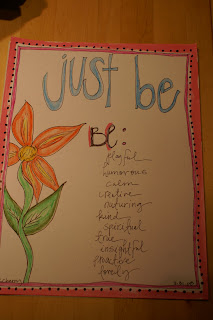 just be
Be:
playful
humorous
calm
creative
nuturing
kind
spiritual
true
insightful